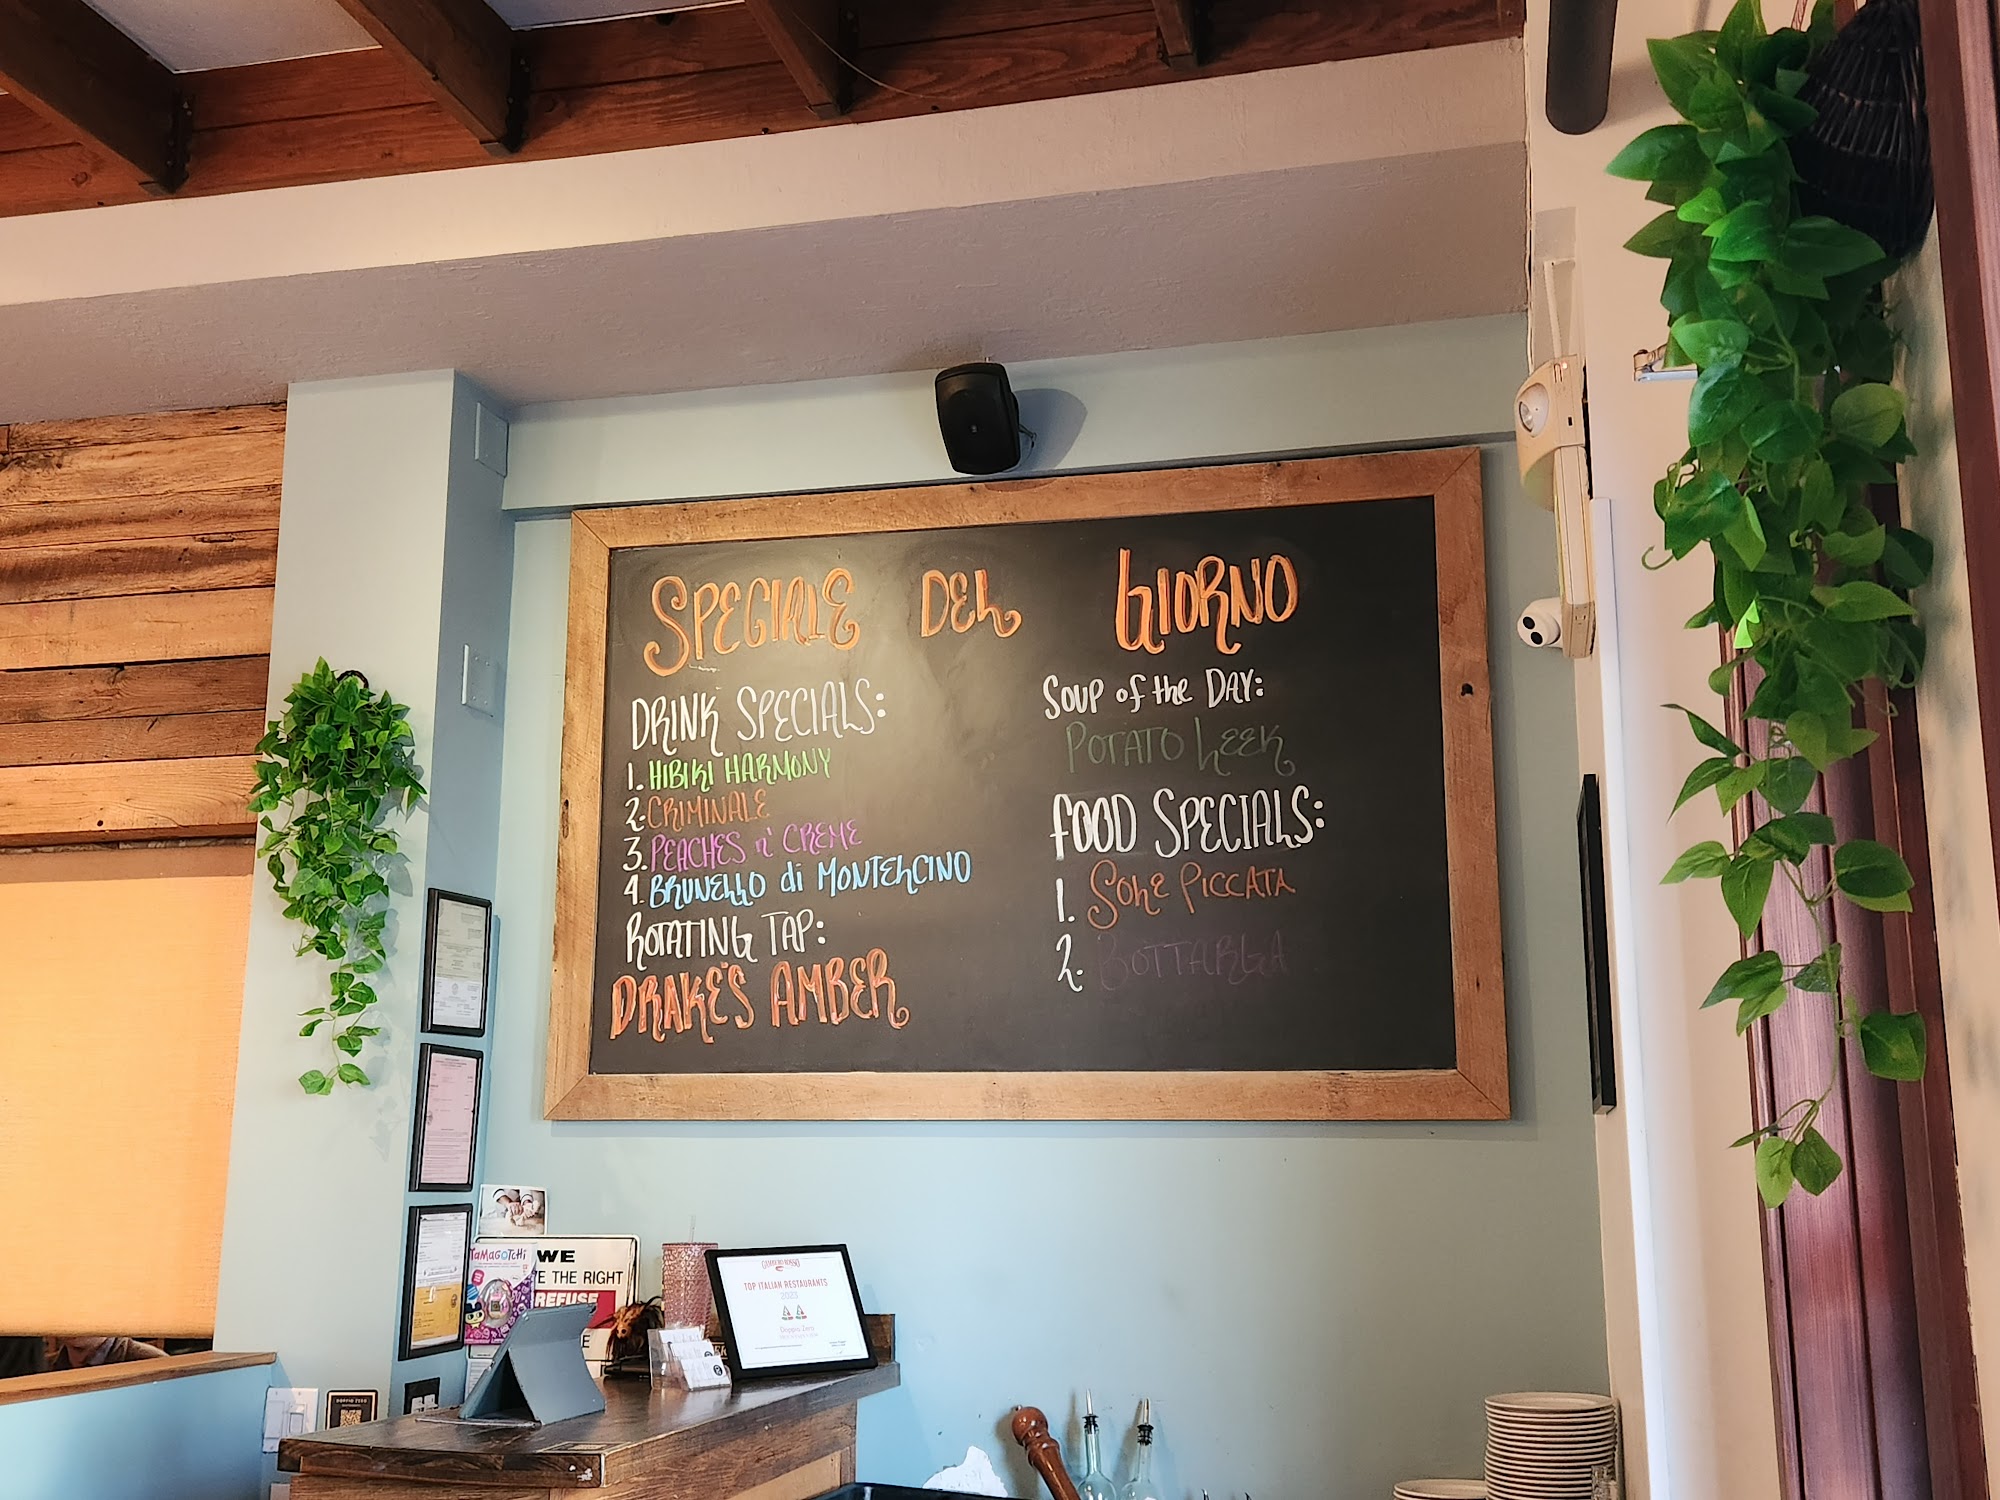 SPECIALE DEL GIORNO
DRINK SPECIALS:
1. HIBIKI HARMONY
2. CRIMINALE
3. PEACHES n' CREME
4. BRUNELLO di MONTELCINO
ROTATING TAP:
DRAKE'S AMBER
SOUP of the DAY:
POTATO LEEK
FOOD SPECIALS:
1. SOLE PICCATA
2. BOTTARGA
TAMAGOTCHI
WE
THE RIGHT
REFUSE
GAMBERO ROSSO
TOP ITALIAN RESTAURANTS
2023
Doppio Zero
DOPPIO ZERO